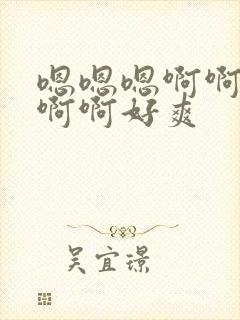 嗯嗯嗯啊啊
啊啊好爽
吴宜璟